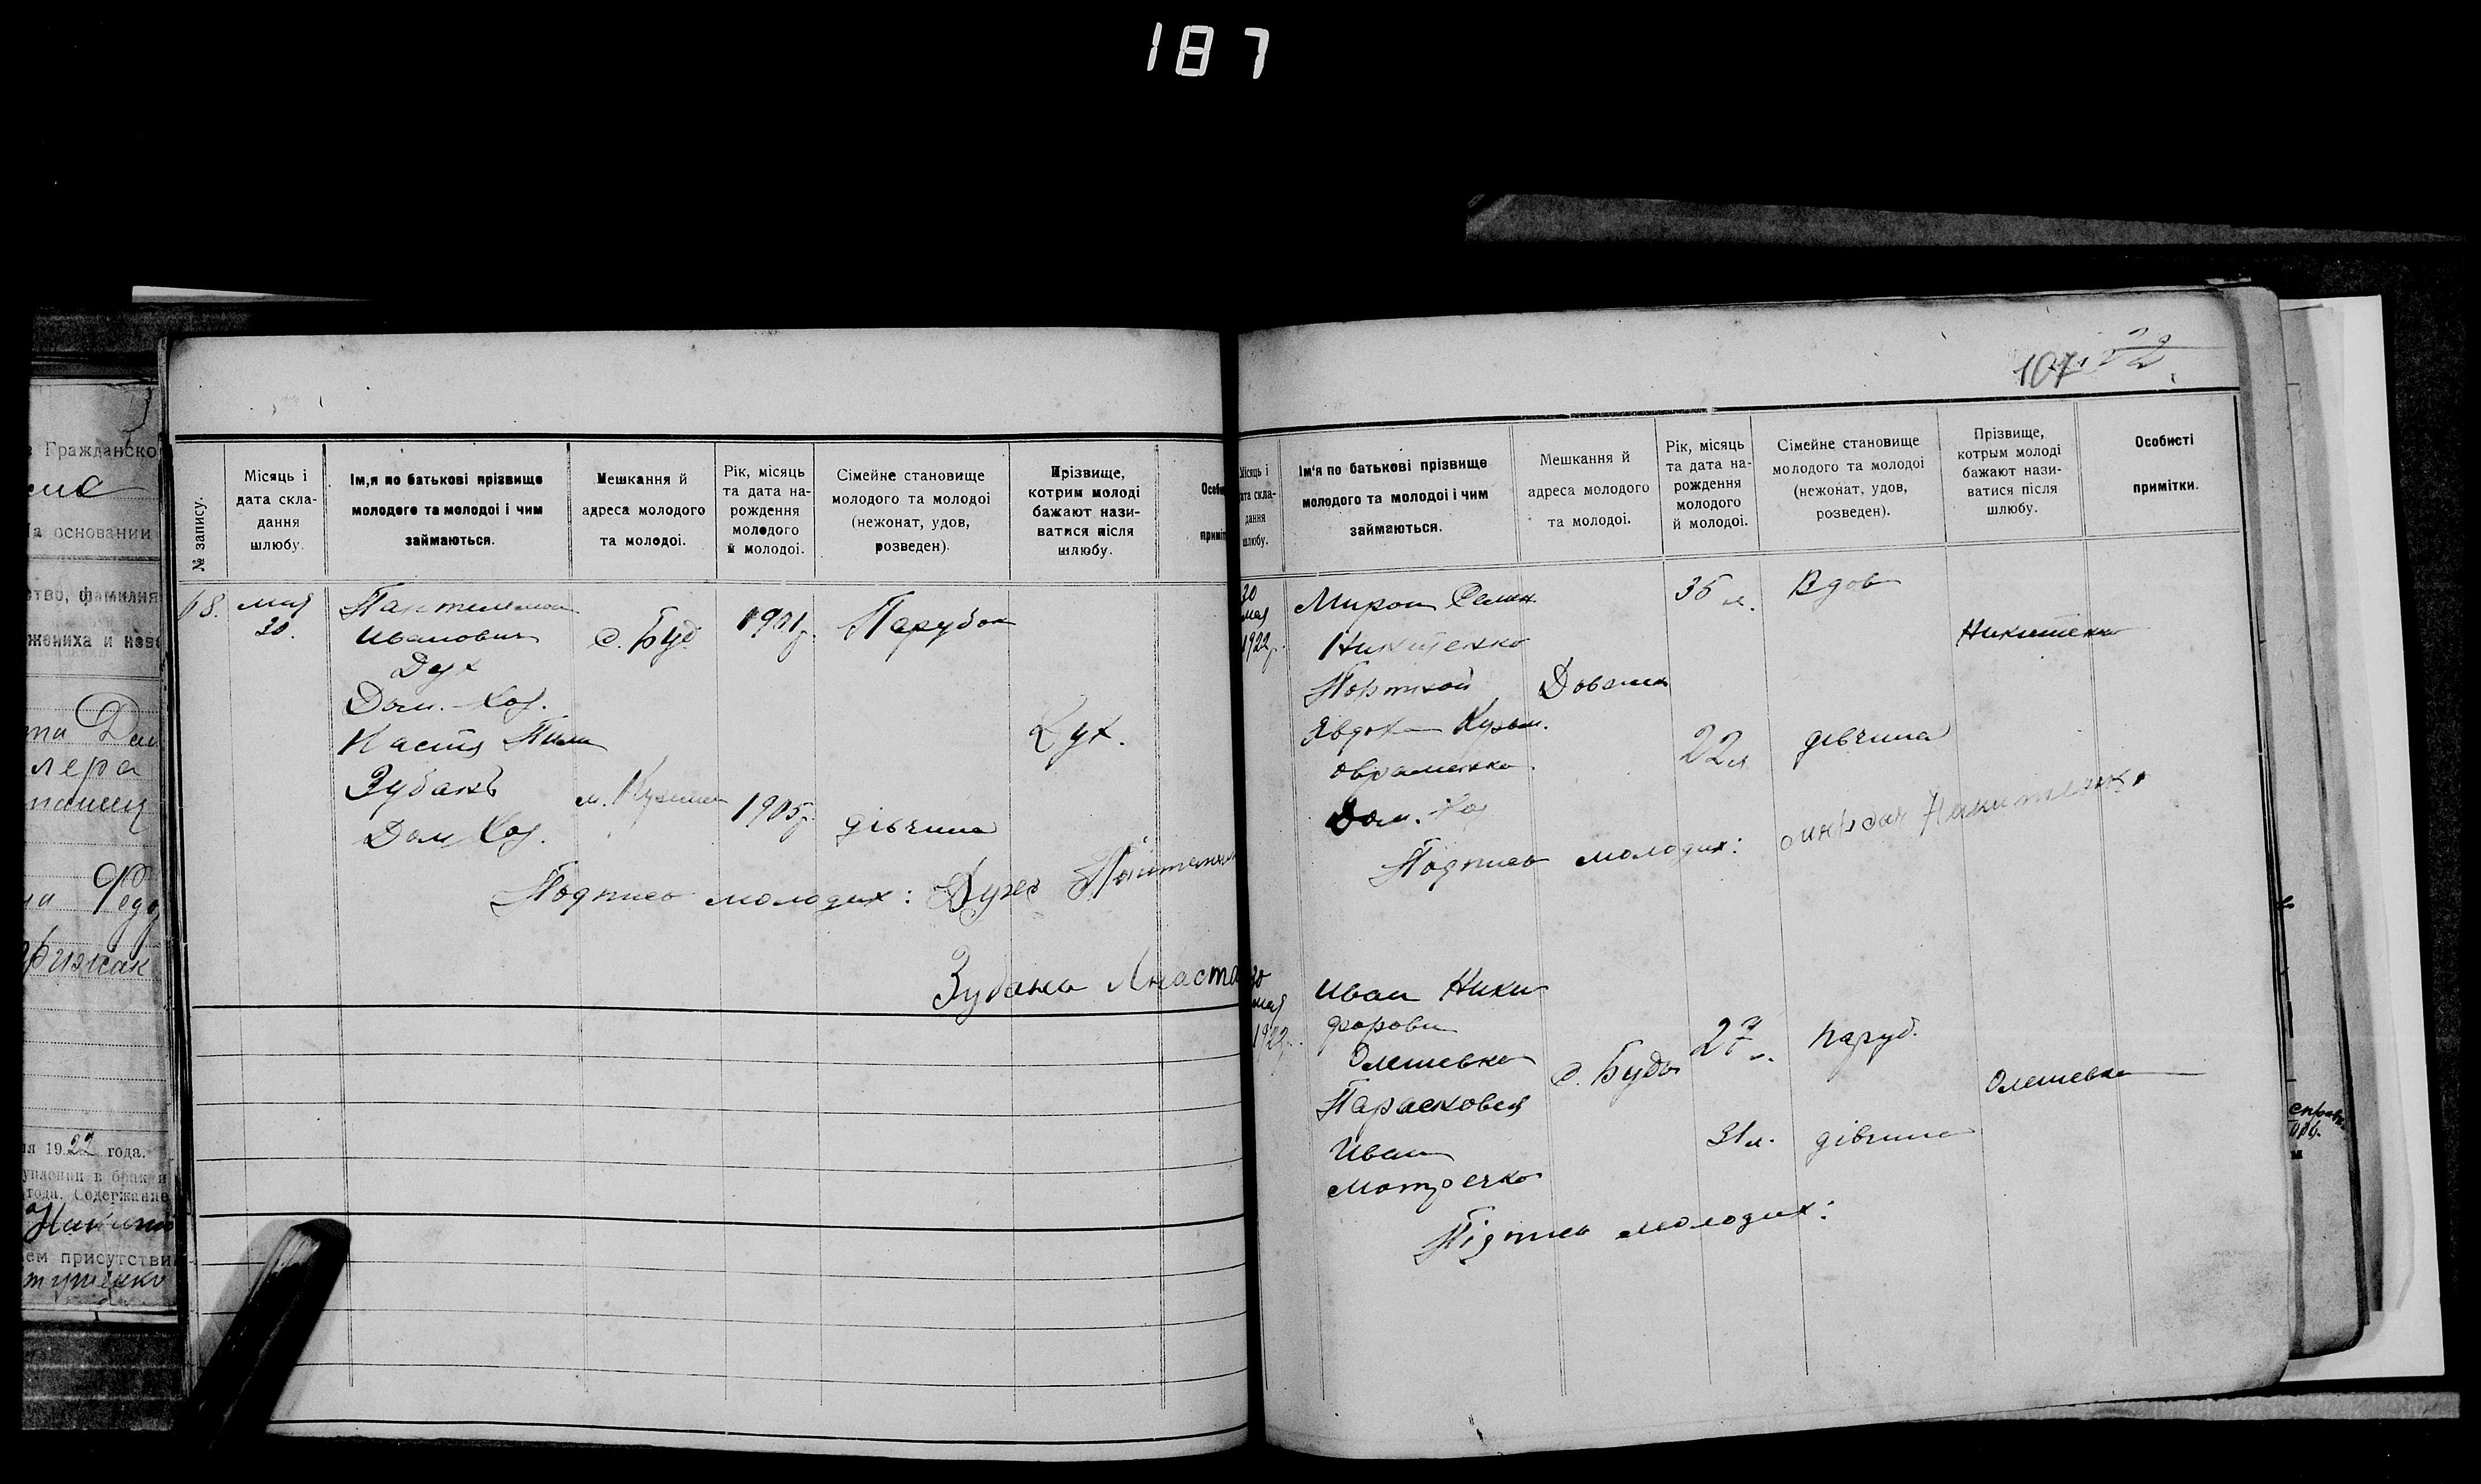 187
е Гражданско
На основании
ство, фамилия
жениха и неве
та Дан
лера
Федо
ня 1922 года.
уплении в брак и
года. Содержание
ем присутстви
№ запису.
Місяць і
дата скла-
дання
шлюбу.
Ім,я по батькові прізвище
молодого та молодоі і чим
займаються.
Мешкання й
адреса молодого
та молодоі.
Рік, місяць
та дата на-
рождення
молодого
й молодоі.
Сімейне становище
молодого та молодоі
(нежонат, удов,
розведен).
Прізвище,
котрим молоді
бажают нази-
ватися після
шлюбу.
Особи
приміт
68. мая
30.
Пантелемон
Иванович
Дух
Дом. Хоз.
с. Буд. 1901 г. Парубок
Настя Пили
Зубань
Дом Хоз.
м. 1905 г. дівчина
Дух.
Подпись молодих: Духъ
Зубань Анаста
107
Місяць і
дата скла-
дання
шлюбу.
Ім'я по батькові прізвище
молодого та молодоі і чим
займаються.
Мешкання й
адреса молодого
та молодоі.
Рік, місяць
та дата на-
рождення
молодого
й молодоі.
Сімейне становище
молодого та молодоі
(нежонат, удов,
розведен).
Прізвище,
котрим молоді
бажают нази-
ватися після
шлюбу.
Особисті
примітки.
30
мая
1922 г.
Мирон Семен.
Никитенко
Портной
Довжик
35 л. Вдов
Никитенко
Явдоха Кузьм.
Овраменко
Дом. Хоз
22 л дівчина
Подпись молодих: Никитенко
30
мая
1922 г.
Иван Ники
форови
Олешевко
с. Буда 27 л. паруб.
Олешевко
Парасковея
Иван
Мотречко
31 л. дівчина
Підпись молодих: